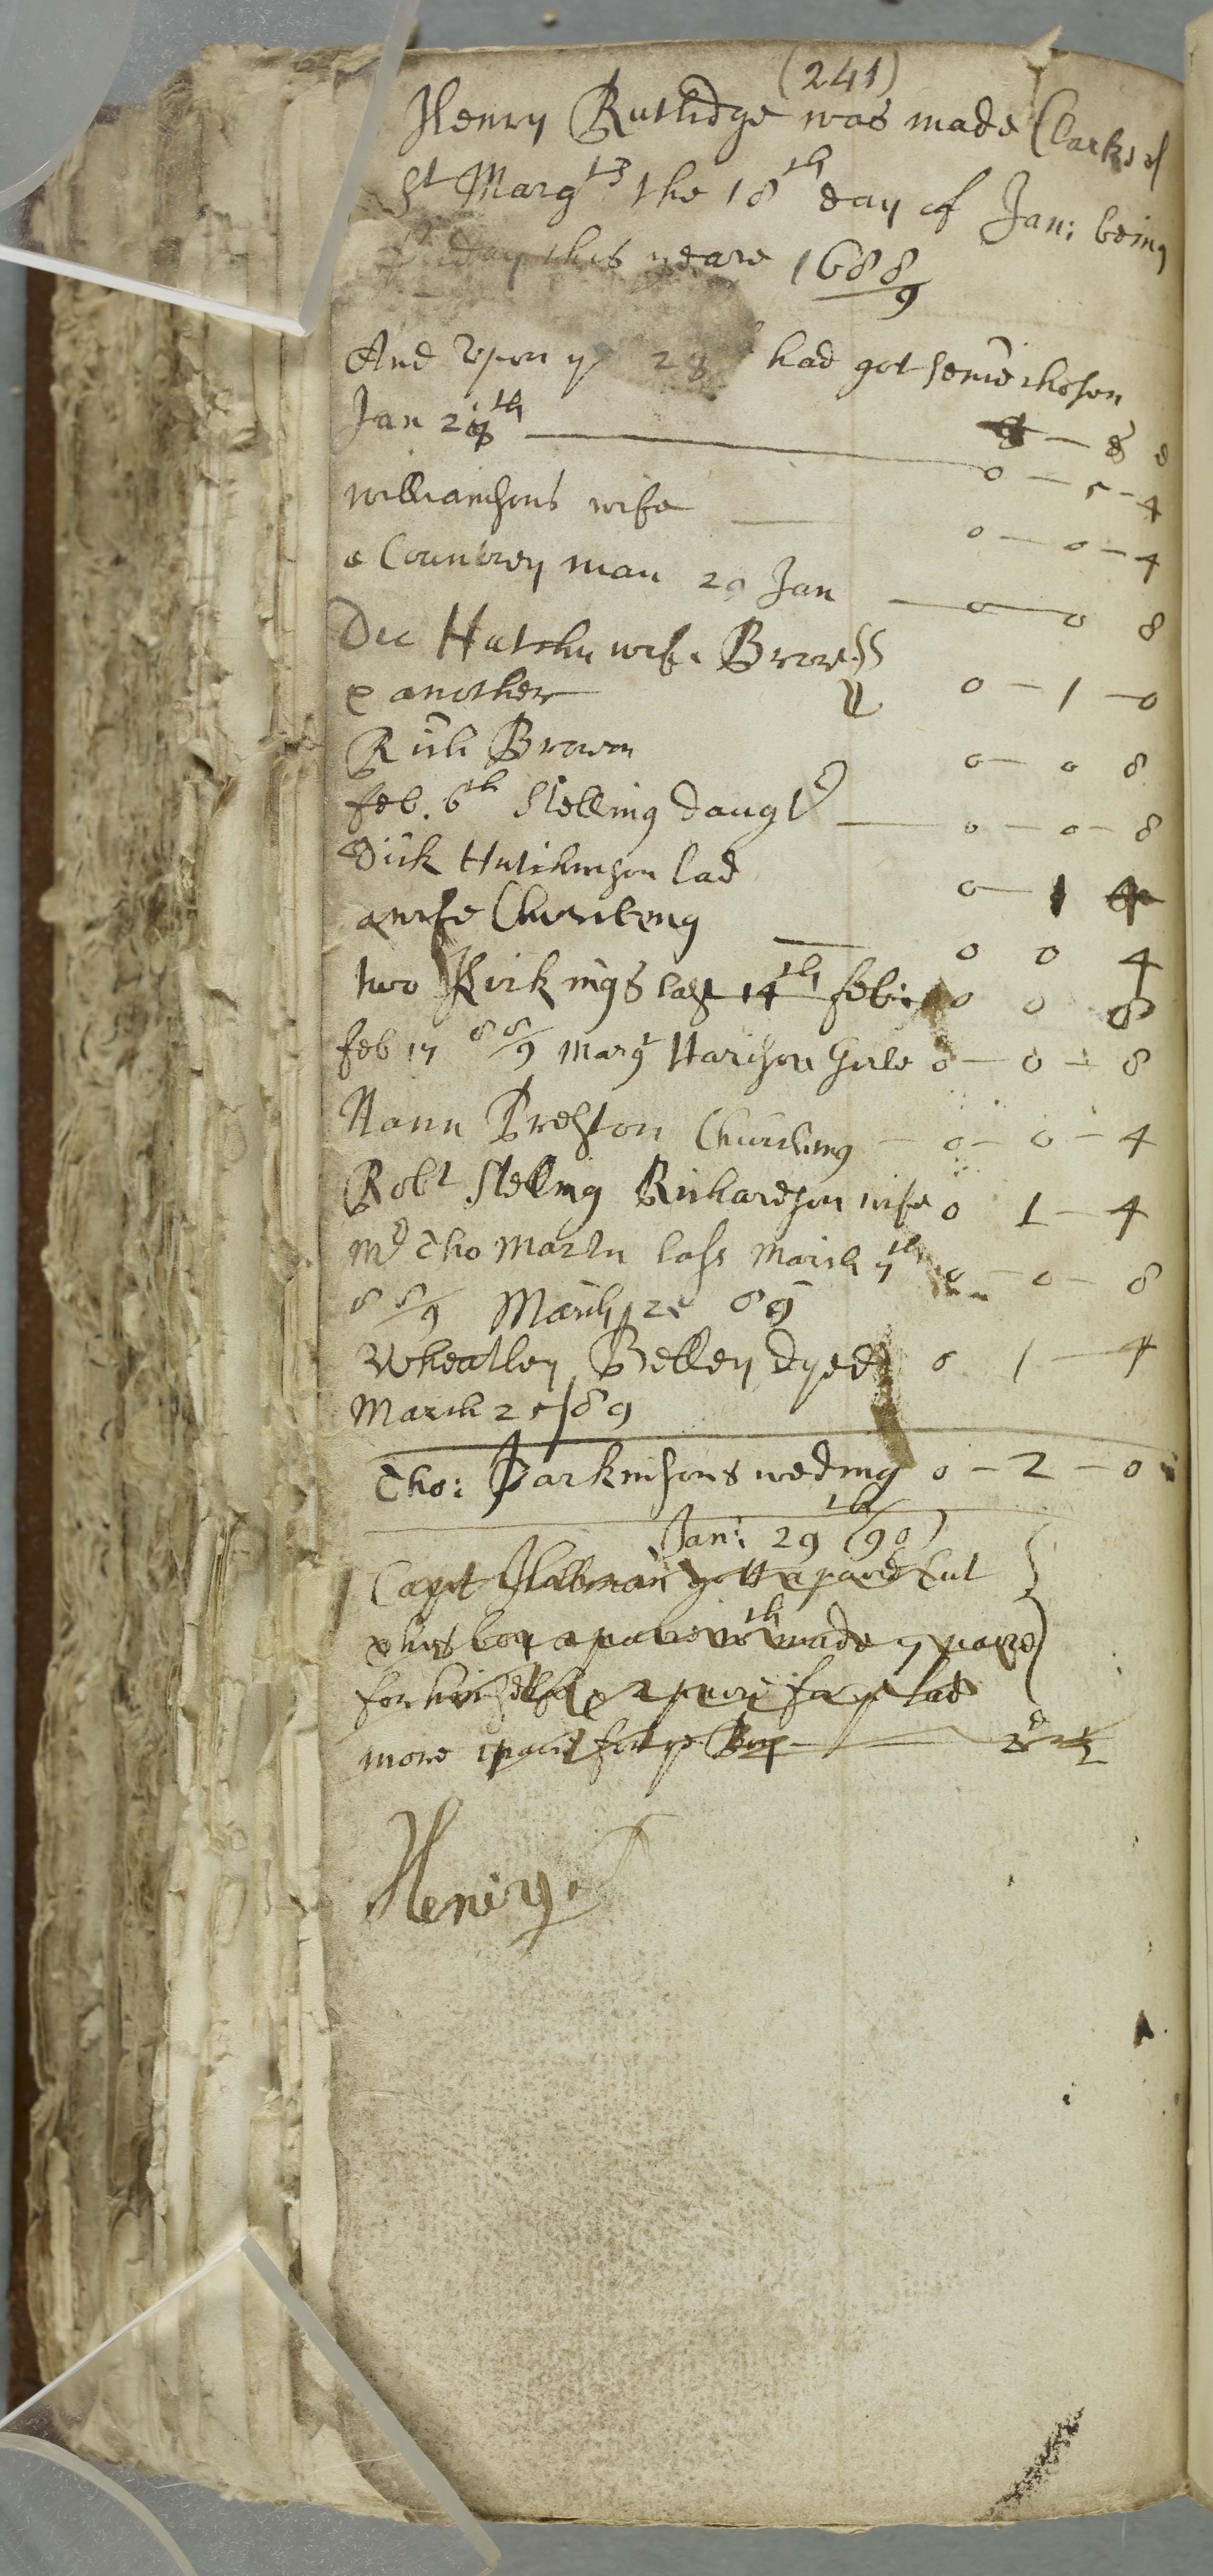 (241)
Henry Rutlidge was made Clarke of
St Margts the 18th day of Jan: being
day this yeare 1688/9
And Upon ye 28 had got
Jan 28th 0 — 5 — 4
Williamsons wife — 0 — 0 — 4
a Countrey man 29 Jan — 0 — 0 8
Dic Hutchn wife Brow
& another 0 — 1 — 0
Rich Brown 0 — 0 8
feb. 6th Stelling daugtr — 0 — 0 — 8
Dick Hutchinson lad 0 — 1 4
a wife Churching — 0 0 4
two Kirkings last 14th feb: 0 0 8
feb 17 88/9 Margt Harison Girle 0 — 0 — 8
Nann Preston Churching — 0 — 0 — 4
Robt Stelling Richardson wife 0 1 — 4
Mr Tho Martin lass March 7th 0 — 0 — 8
88/9 March 25 89
Wheatley Belley dyed 0 1 — 4
March 25/89
Tho: Parkinsons weding 0 — 2 — 0
Jan: 29th (90)
Capt Hillman gott a paire Cut
& his boy a paire 18th made 7 paire
for himselfe & 2 paire for ye lad
more 1 paire for ye Boy —
Henirye